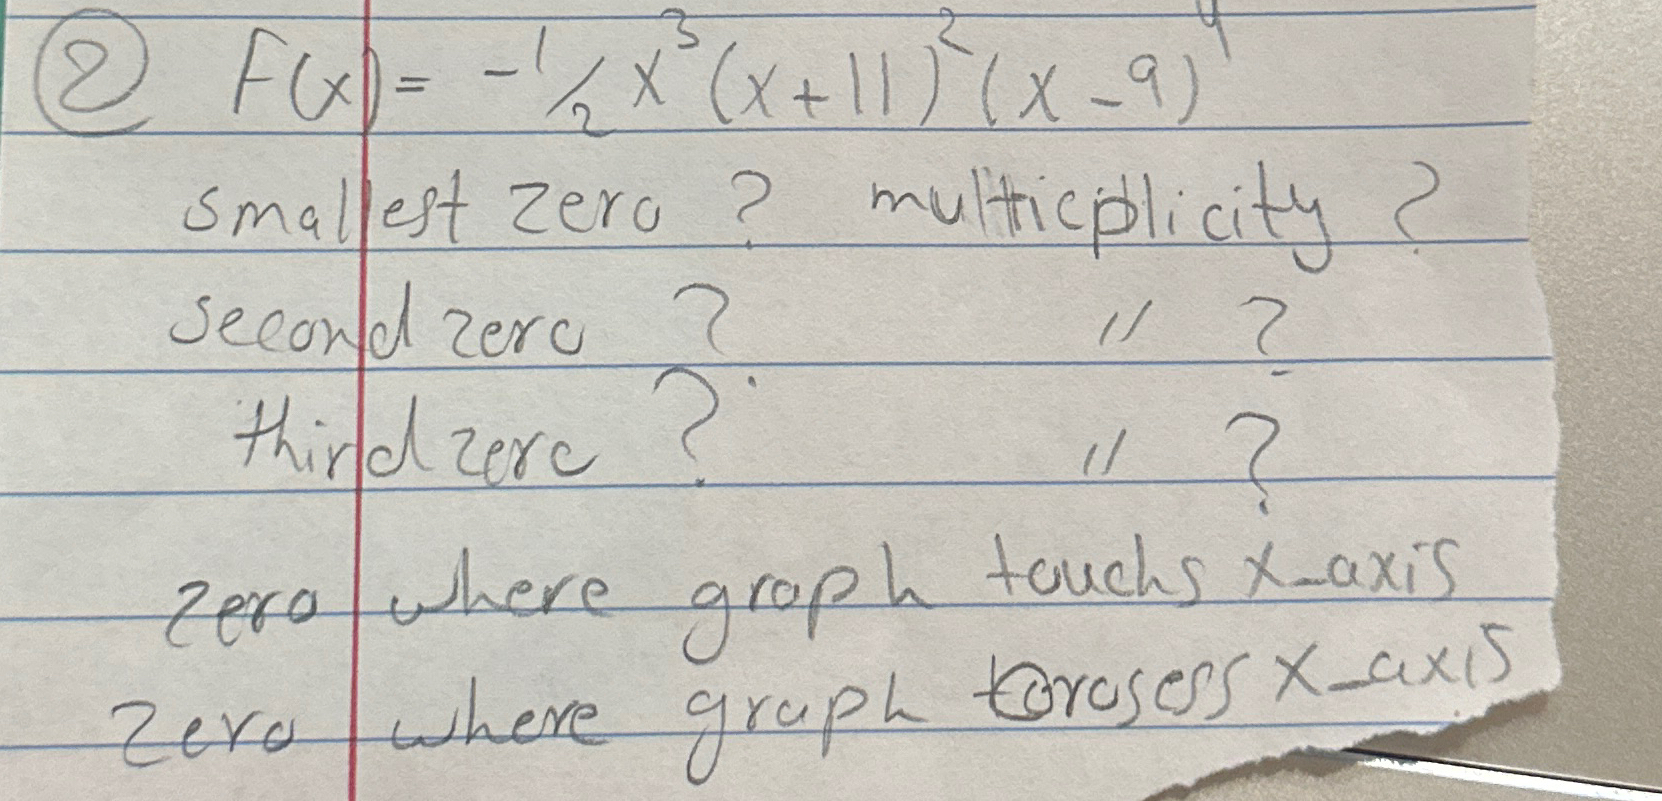 ② F(x) = -1/2 x³ (x+11)² (x-9)⁴
smallest zero ? multicplicity ?
second zero ? " ?
third zero ? " ?
zero where graph touchs x-axis
zero where graph crosess x-axis